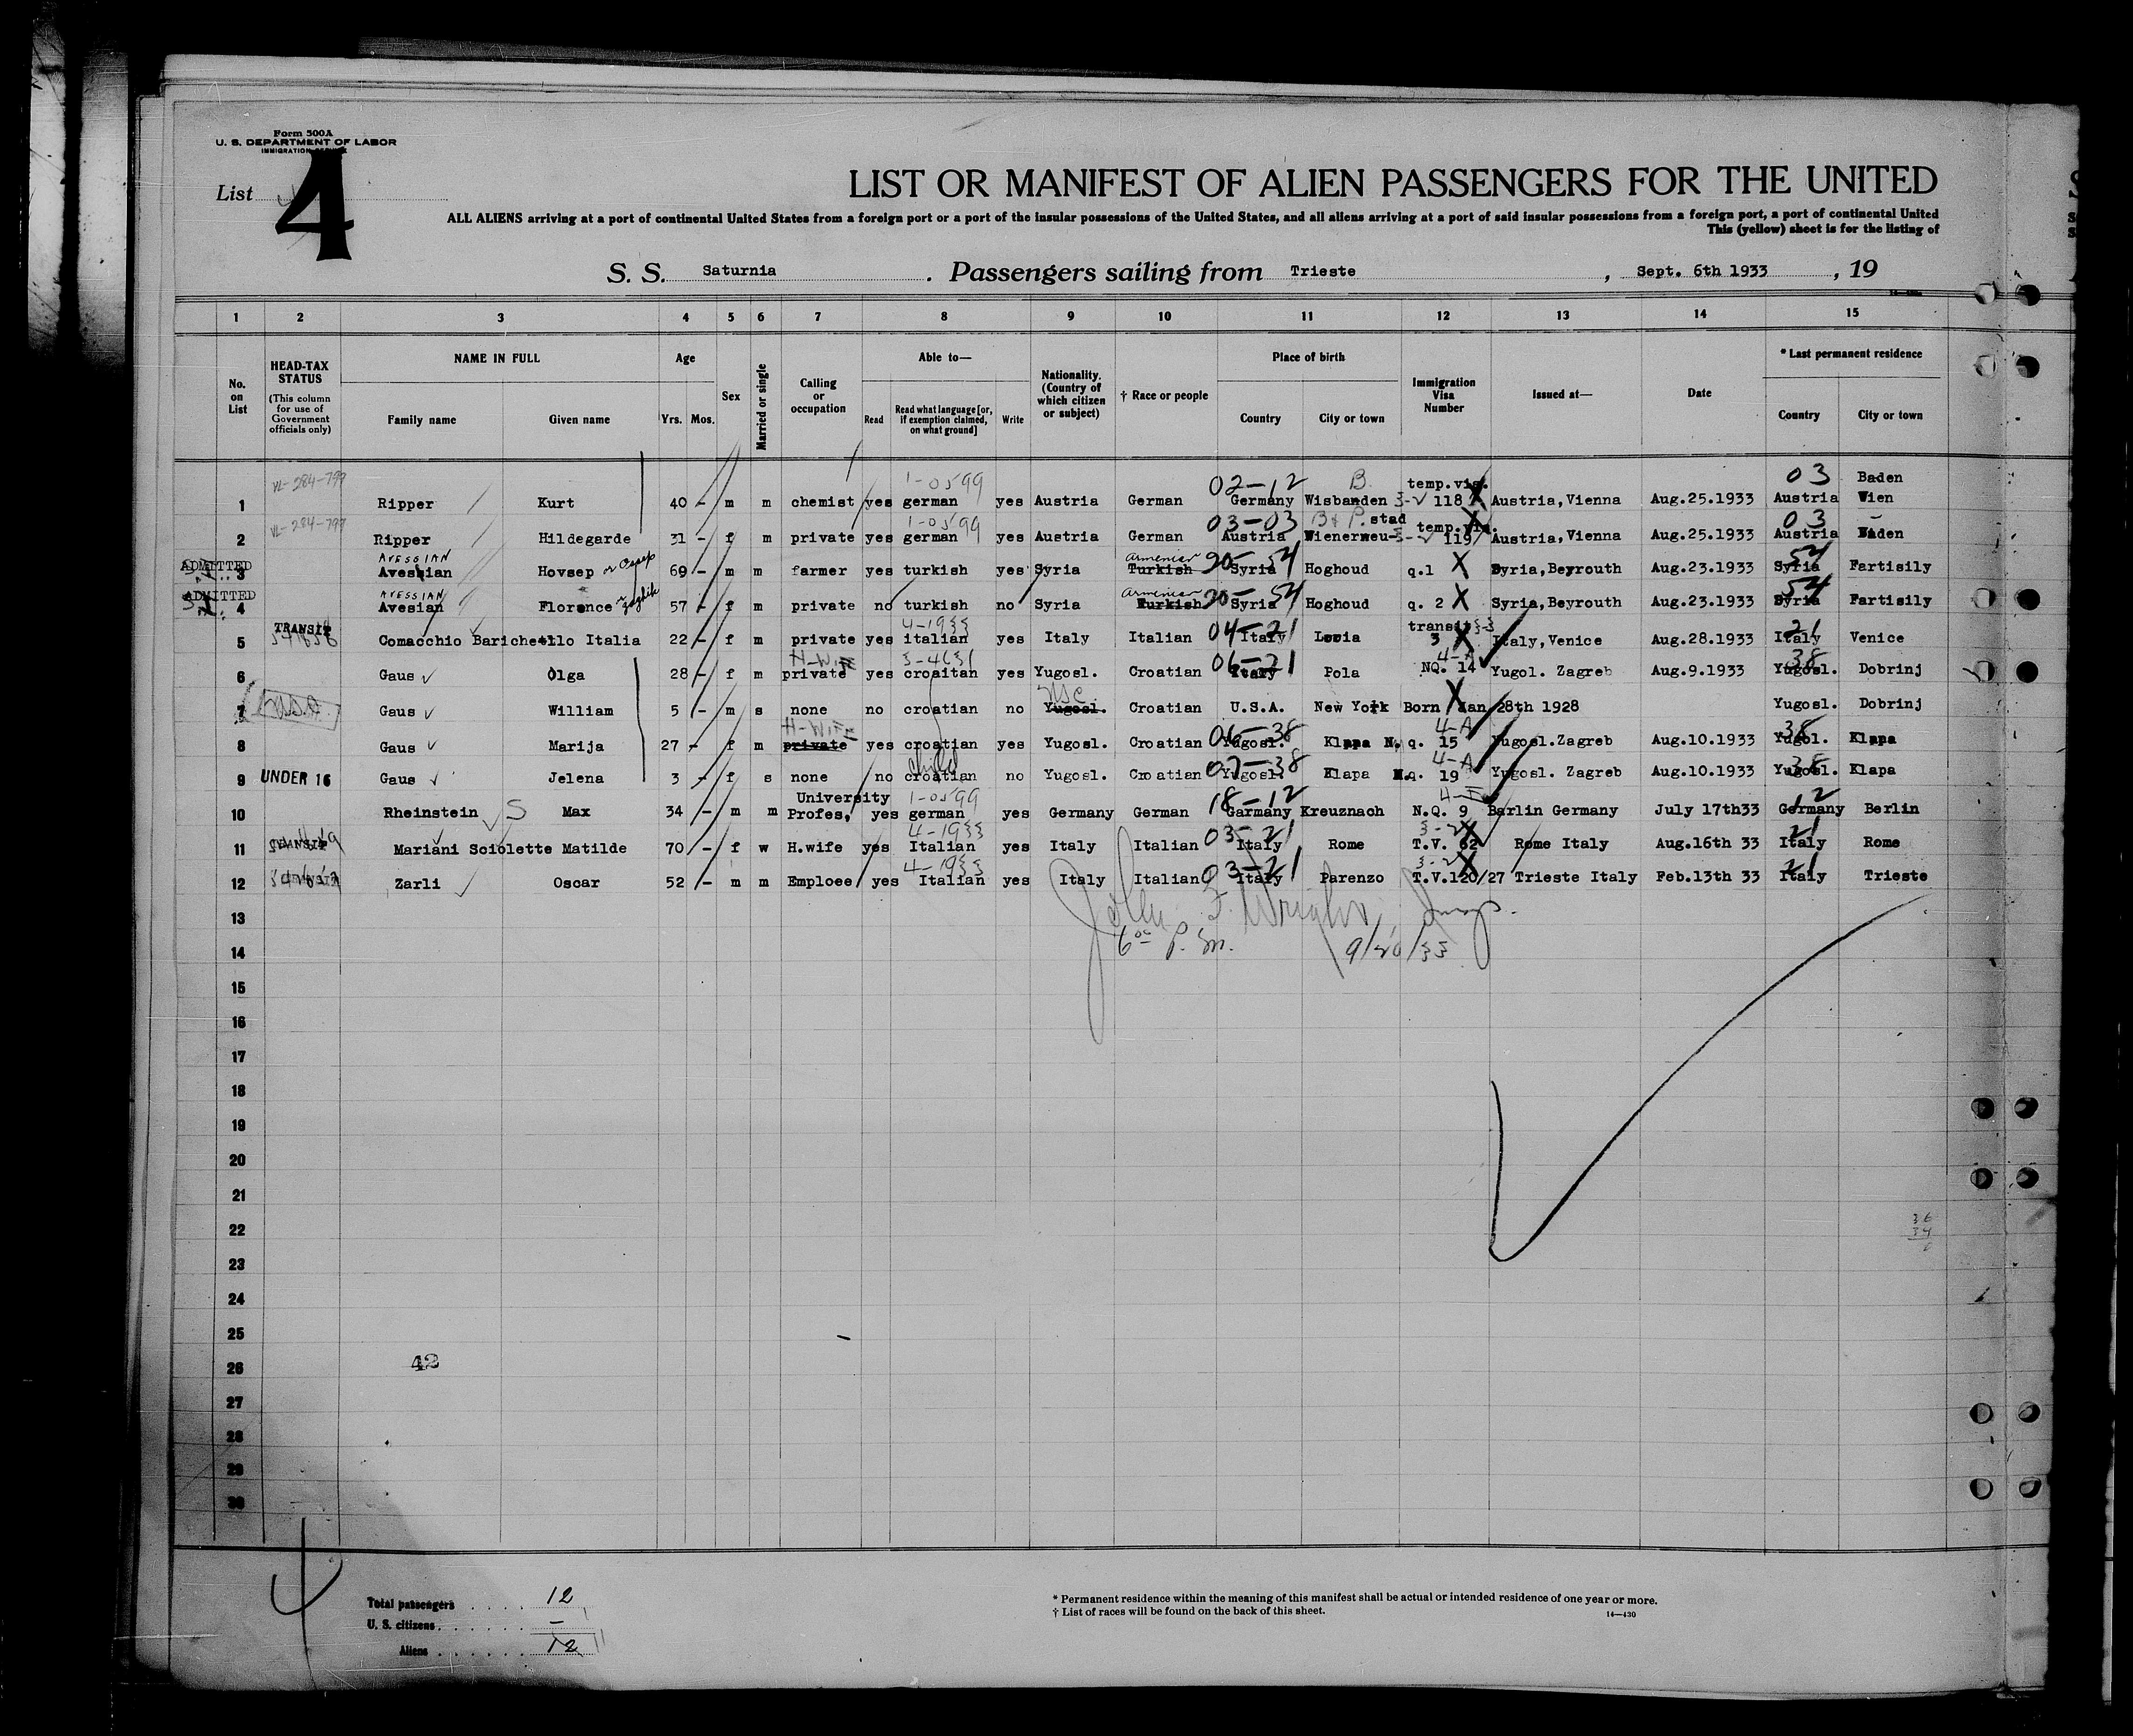 Form 500A
U. S. DEPARTMENT OF LABOR
IMMIGRATION SERVICE
List 4
LIST OR MANIFEST OF ALIEN PASSENGERS FOR THE UNITED
ALL ALIENS arriving at a port of continental United States from a foreign port or a port of the insular possessions of the United States, and all aliens arriving at a port of said insular possessions from a foreign port, a port of continental United
This (yellow) sheet is for the listing of
S. S. Saturnia. Passengers sailing from Trieste, Sept. 6th 1933, 19
1 2 3 4 5 6 7 8 9 10 11 12 13 14 15
No. on List
HEAD-TAX STATUS
(This column for use of Government officials only)
NAME IN FULL
Family name Given name
Age
Yrs. Mos.
Sex
Married or single
Calling or occupation
Able to—
Read Read what language [or, if exemption claimed, on what ground] Write
Nationality. (Country of which citizen or subject)
† Race or people
Place of birth
Country City or town
Immigration Visa Number
Issued at—
Date
* Last permanent residence
Country City or town
VL-284-799 1-0599 02-12 B. temp.vis. 03 Baden
1 Ripper Kurt 40 - m m chemist yes german yes Austria German Germany Wisbanden 3-✓ 118 X Austria, Vienna Aug.25.1933 Austria Wien
VL-284-799 1-0599 03-03 B+P. stad temp.vis. 03
2 Ripper Hildegarde 31 - f m private yes german yes Austria German Austria Wienerneu- 119 Austria, Vienna Aug.25.1933 Austria Baden
ADMITTED AVESSIAN or Osep Armenian 54
3 Avesian Hovsep 69 - m m farmer yes turkish yes Syria Turkish Syria Hoghoud q.1 X Syria, Beyrouth Aug.23.1933 Syria Fartisily
ADMITTED AVESSIAN Armenian 54
4 Avesian Florence 57 - f m private no turkish no Syria Turkish Syria Hoghoud q. 2 X Syria, Beyrouth Aug.23.1933 Syria Fartisily
TRANSIT 4-1933 04-21 transit 21
5 Comacchio Barichello Italia 22 - f m private yes italian yes Italy Italian Italy Lovia 3 X Italy, Venice Aug.28.1933 Italy Venice
H-WIFE 06-21 4-A 38
6 Gaus ✓ Olga 28 - f m private yes croaitan yes Yugosl. Croatian Italy Pola NQ. 14 Yugol. Zagreb Aug.9.1933 Yugosl. Dobrinj
USC
7 Gaus ✓ William 5 - m s none no croatian no Yugosl. Croatian U.S.A. New York Born Jan 28th 1928 Yugosl. Dobrinj
H-WIFE 06-38 4-A 38
8 Gaus ✓ Marija 27 - f m private yes croatian yes Yugosl. Croatian Yugosl. Klapa N. q. 15 Yugosl. Zagreb Aug.10.1933 Yugosl. Klapa
child 07-38 4-A 38
9 UNDER 16 Gaus ✓ Jelena 3 - f s none no croatian no Yugosl. Croatian Yugosl. Klapa N.q. 19 Yugosl. Zagreb Aug.10.1933 Yugosl. Klapa
University 1-0599 18-12 12
10 Rheinstein ✓ S Max 34 - m m Profes, yes german yes Germany German Germany Kreuznach N.Q. 9 Barlin Germany July 17th33 Germany Berlin
TRANSIT 4-1933 03-21 3-2 21
11 Mariani Sciolette Matilde 70 - f w H.wife yes Italian yes Italy Italian Italy Rome T.V. 62 Rome Italy Aug.16th 33 Italy Rome
4-1933 03-21 3-2 21
12 Zarli ✓ Oscar 52 - m m Emploee yes Italian yes Italy Italian Italy Parenzo T.V.120/27 Trieste Italy Feb.13th 33 Italy Trieste
13 John F. Wright, Insp.
14 6 00 P.M. 9/20/33
15
16
17
18
19
20
21
22
23
24
25
26 42
27
28
29
30
Total passengers 12
U. S. citizens —
Aliens 12 11
* Permanent residence within the meaning of this manifest shall be actual or intended residence of one year or more.
† List of races will be found on the back of this sheet. 14—430